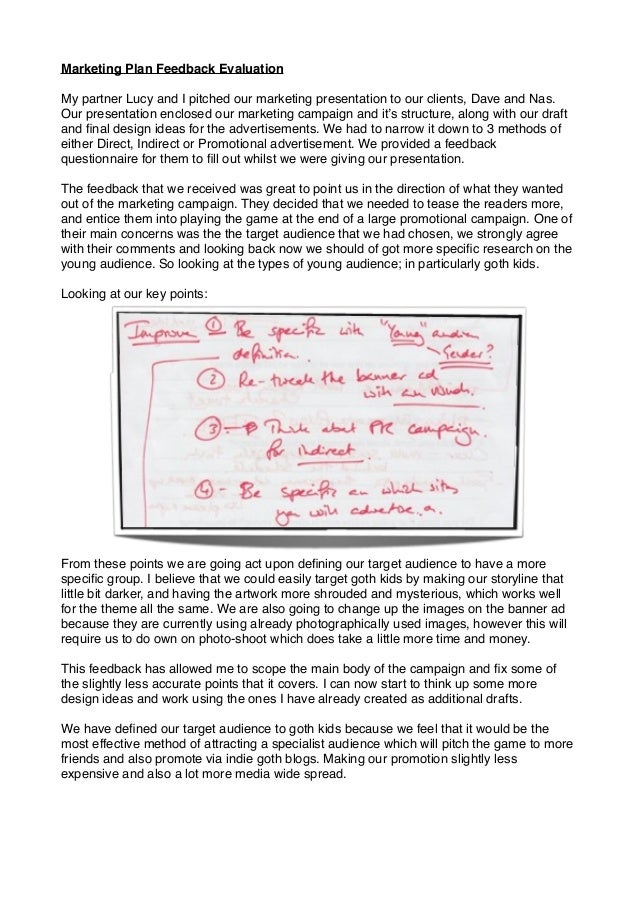 Marketing Plan Feedback Evaluation
My partner Lucy and I pitched our marketing presentation to our clients, Dave and Nas.
Our presentation enclosed our marketing campaign and it's structure, along with our draft
and final design ideas for the advertisements. We had to narrow it down to 3 methods of
either Direct, Indirect or Promotional advertisement. We provided a feedback
questionnaire for them to fill out whilst we were giving our presentation.
The feedback that we received was great to point us in the direction of what they wanted
out of the marketing campaign. They decided that we needed to tease the readers more,
and entice them into playing the game at the end of a large promotional campaign. One of
their main concerns was the the target audience that we had chosen, we strongly agree
with their comments and looking back now we should of got more specific research on the
young audience. So looking at the types of young audience; in particularly goth kids.
Looking at our key points:
Improve ① Be specific with "Young" audien
definition. - Gender?
② Re-tweak the banner ad
with an
③ → Think about PR campaign.
for indirect.
④ - Be specific on which sites
you will advertise on.
From these points we are going act upon defining our target audience to have a more
specific group. I believe that we could easily target goth kids by making our storyline that
little bit darker, and having the artwork more shrouded and mysterious, which works well
for the theme all the same. We are also going to change up the images on the banner ad
because they are currently using already photographically used images, however this will
require us to do own on photo-shoot which does take a little more time and money.
This feedback has allowed me to scope the main body of the campaign and fix some of
the slightly less accurate points that it covers. I can now start to think up some more
design ideas and work using the ones I have already created as additional drafts.
We have defined our target audience to goth kids because we feel that it would be the
most effective method of attracting a specialist audience which will pitch the game to more
friends and also promote via indie goth blogs. Making our promotion slightly less
expensive and also a lot more media wide spread.